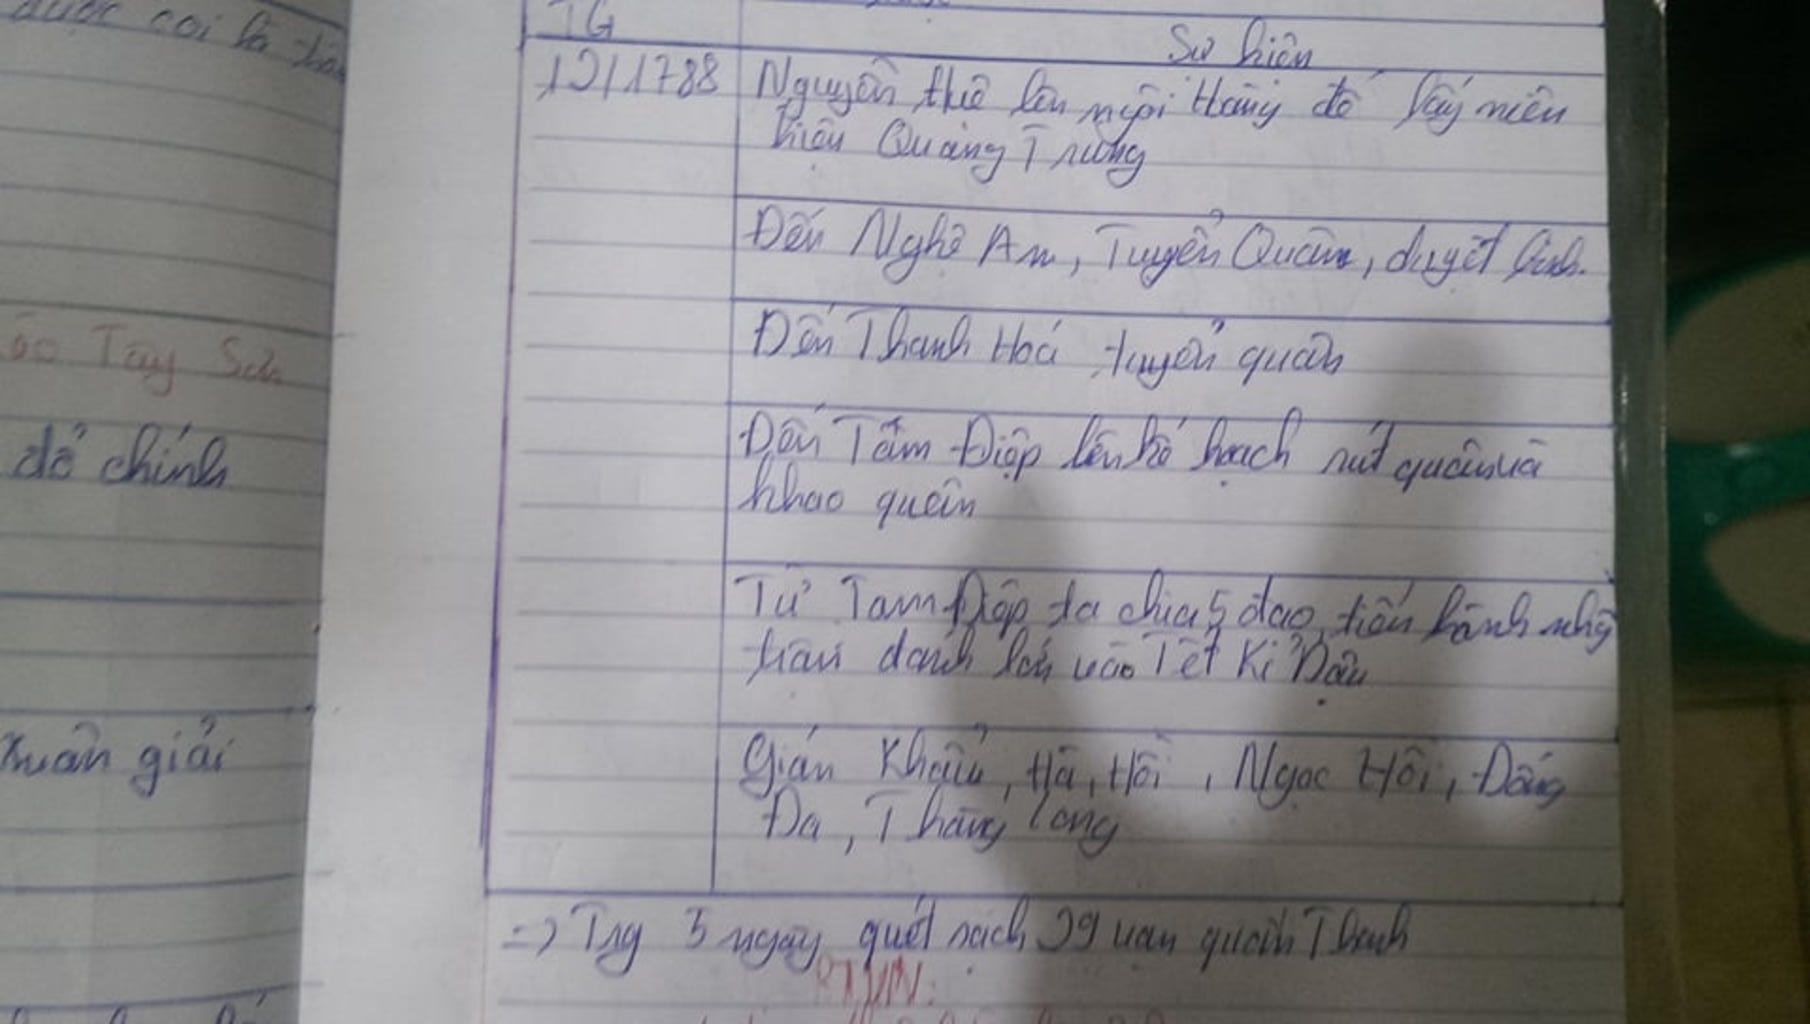 được coi là
TG
Sự kiện
12/1788 Nguyễn Huệ lên ngôi Hoàng đế lấy niên
hiệu Quang Trung
Đến Nghệ An, Tuyển Quân, duyệt binh.
Đến Thanh Hoá tuyển quân
Đến Tam Điệp lên kế hoạch rút quân và
khao quân
Từ Tam Điệp ta chia 5 đạo, tiến hành
trận đánh lớn vào Tết Kỉ Dậu
Gián Khẩu, Hà, Hồi, Ngọc Hồi, Đống
Đa, Thăng Long
=> Trg 5 ngày quét sạch 29 vạn quân Thanh
BTVN:
Tây Sơn
đô chính
Xuân giải